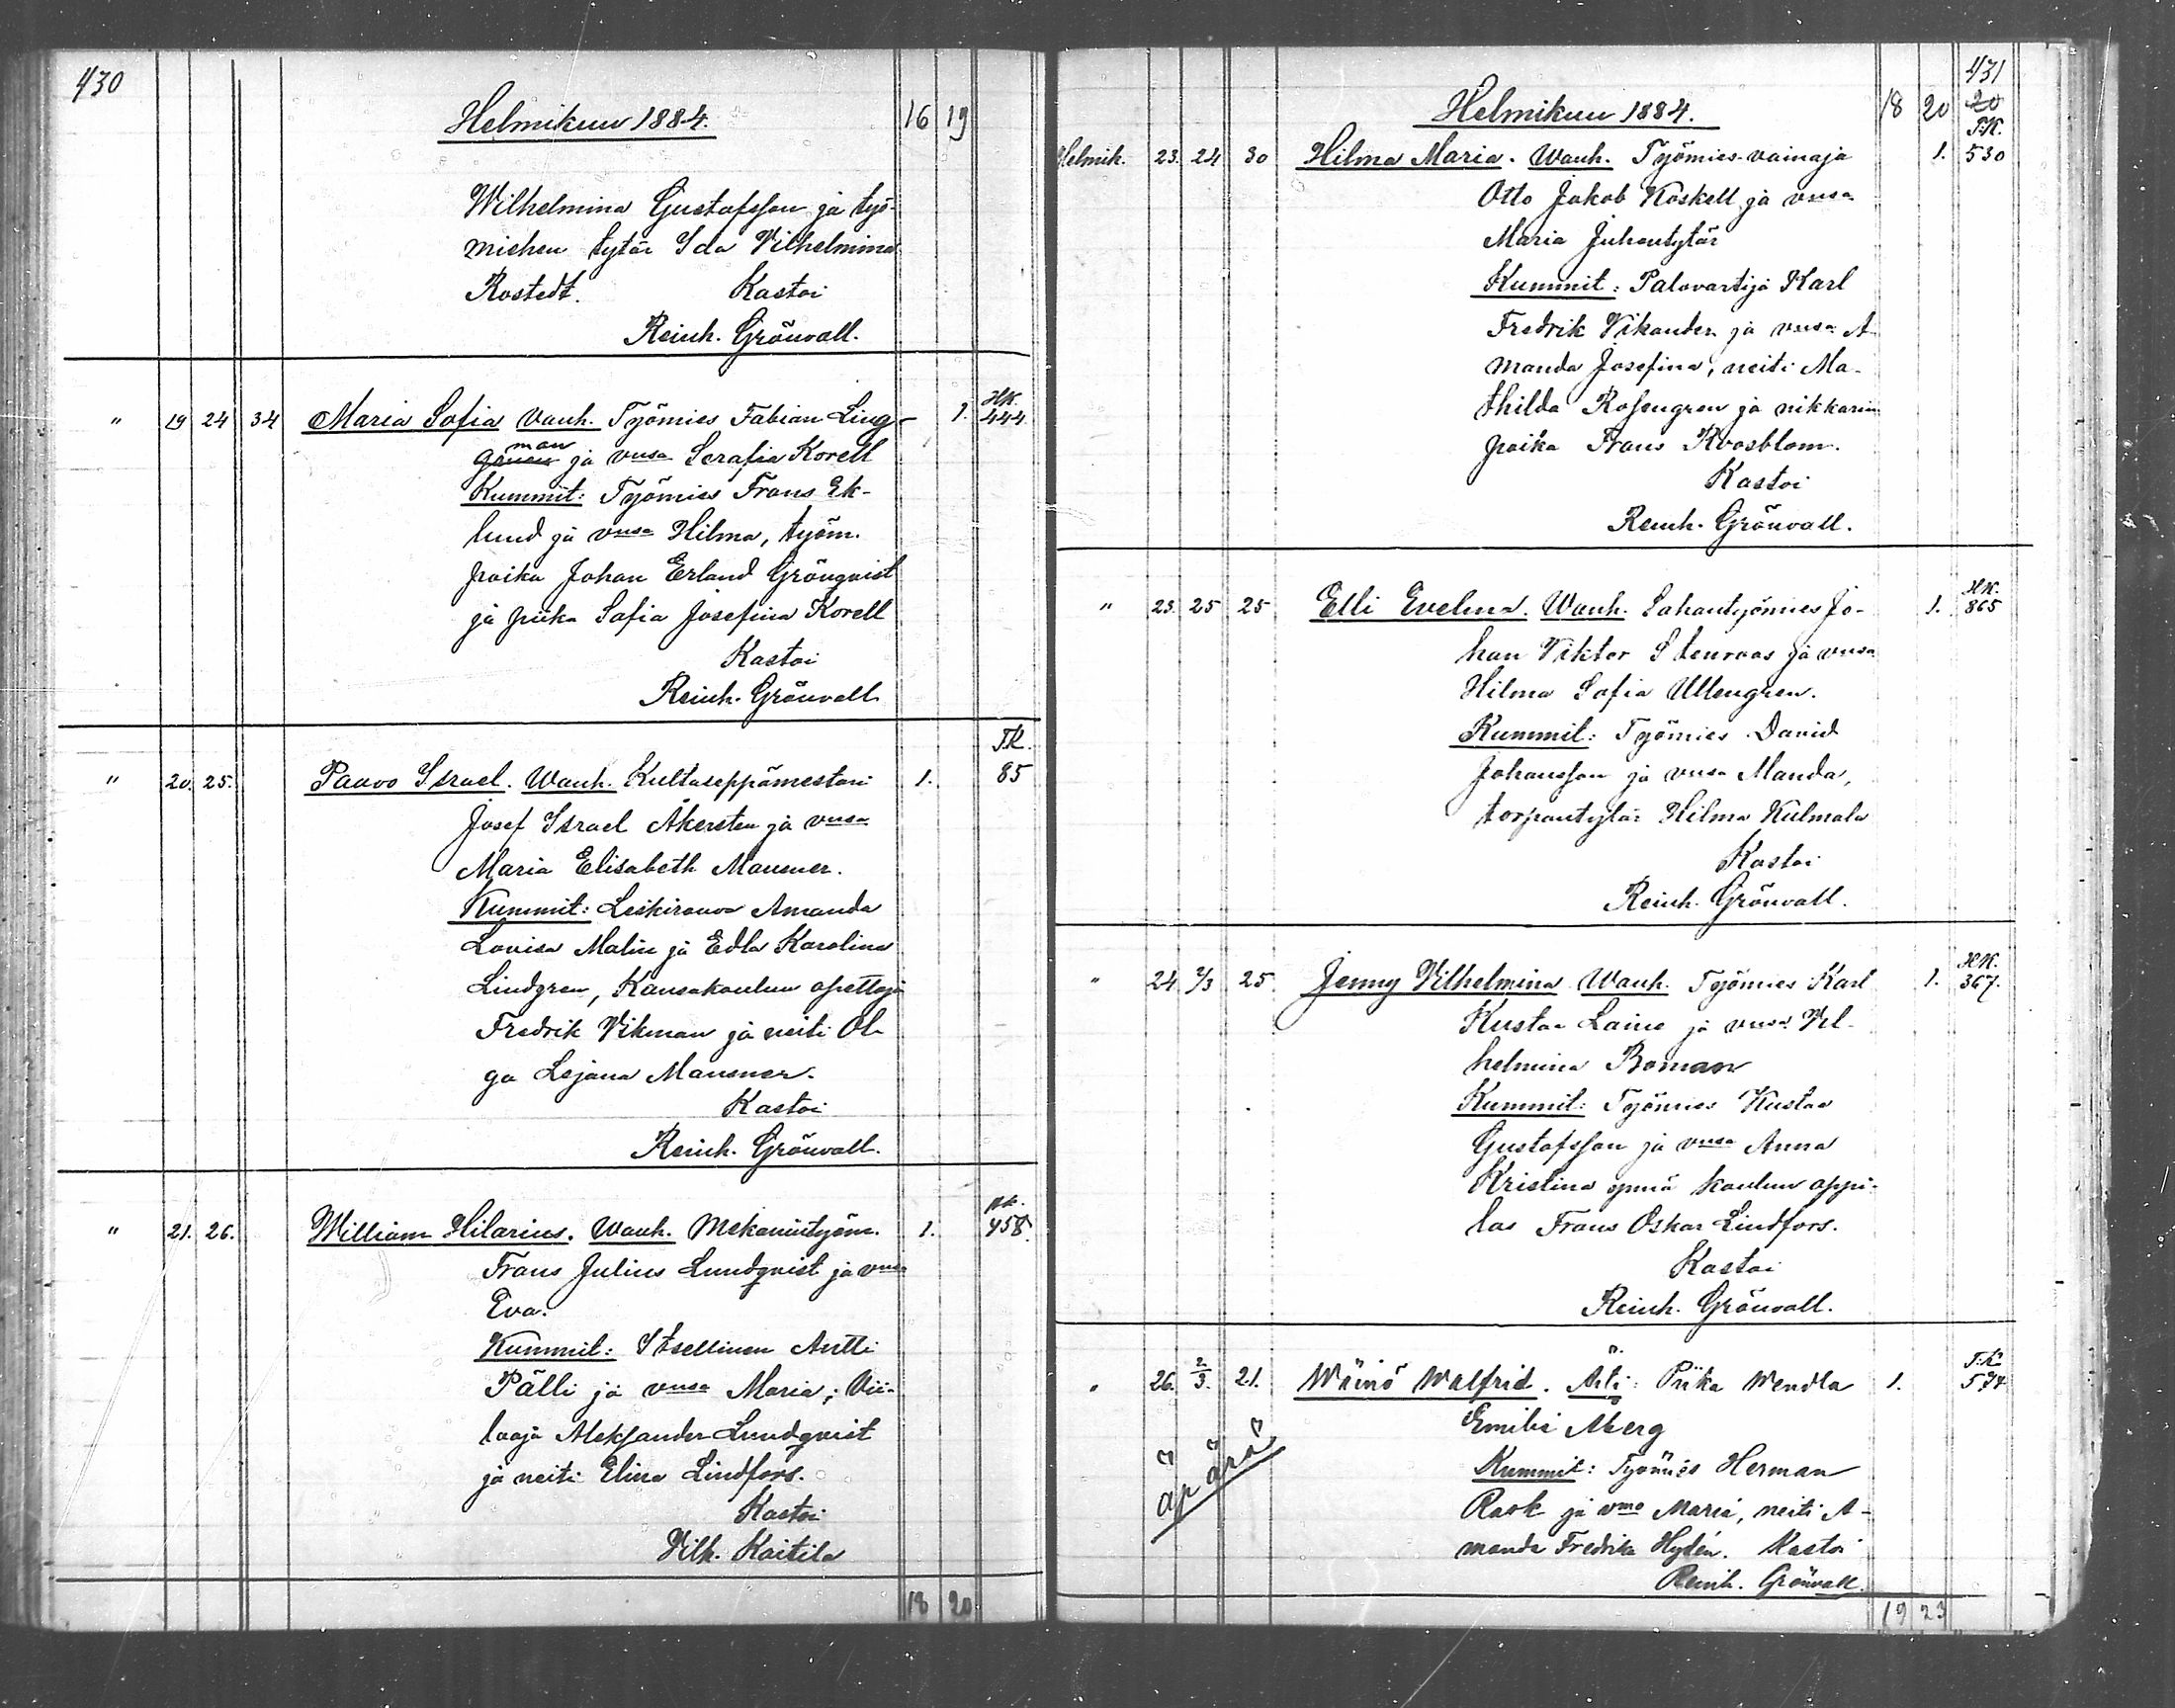 430
Helmikuu 1884. 16 19
Wilhelmina Gustafsson ja työ-
miehen tytär Ida Vilhelmina
Rostedt. Kastoi
Reinh. Grönvall.
" 19 24 34 Maria Sofia Vanh. Työmies Fabian Ling- 1. HK. 444
man
ja vmsa Serafia Korell
Kummit: Työmies Frans Ek-
lund ja vmsa Hilma, työm.
poika Johan Erland Grönqvist
ja piika Sofia Josefina Korell
Kastoi
Reinh. Grönvall
T.K.
" 20. 25. Paavo Israel. Wanh. Kultaseppämestari 1. 85
Josef Israel Åkersten ja vmsa
Maria Elisabeth Mansner.
Kummit: Leskirouva Amanda
Lovisa Malin ja Edla Karolina
Lindgren, Kansakoulun opettaja
Fredrik Vikman ja neiti Ol-
ga Mansner.
Kastoi
Reinh. Grönvall.
" 21. 26. William Hilarius. Wanh. Mekaanintyöm. 1. 458.
Frans Julius Lundqvist ja vmsa
Eva.
Kummit: Itsellinen Antti
Pälli ja vmsa Maria; Vii-
laaja Aleksander Lundqvist
ja neiti Elina Lindfors.
Kastoi
Vilh. Kaitila
18 20
431
Helmikuu 1884. 18 20 20
T.K.
Helmik. 23. 24 30 Hilma Maria. Wanh. Työmies-vainaja 1. 530
Otto Jakob Koskell ja vmsa
Maria Juhontytär
Kummit: Palovartija Karl
Fredrik Vikander ja vmsa A-
manda Josefina, neiti Ma-
thilda Rosengren ja nikkarin
poika Frans Roosblom.
Kastoi
Reinh. Grönvall.
HK.
" 23. 25 25 Elli Evelina. Wanh. Sahantyömies Jo- 1. 865
han Viktor Stenroos ja vmsa
Hilma Sofia Ullengren.
Kummit: Työmies David
Johansson ja vmsa Manda,
torpantytär Hilma Kulmala
Kastoi
Reinh. Grönvall.
HK.
" 24 2/3 25 Jenny Vilhelmina Wanh. Työmies Karl 1. 367.
Kustaa Laine ja vmsa Vil-
helmina Boman
Kummit: Työmies Kustaa
Gustafsson ja vmsa Anna
Kristina ynnä koulun oppi-
las Frans Oskar Lindfors.
Kastoi
Reinh. Grönvall.
T.K.
" 26. 2/3. 21. Wäinö Walfrid. Äiti: Piika Wendla 1. 574
Emilia Åberg
äpärä
Kummit: Työmies Herman
Rask ja vmo Maria, neiti A-
manda Fredrika Hydén. Kastoi
Reinh. Grönvall.
19 23